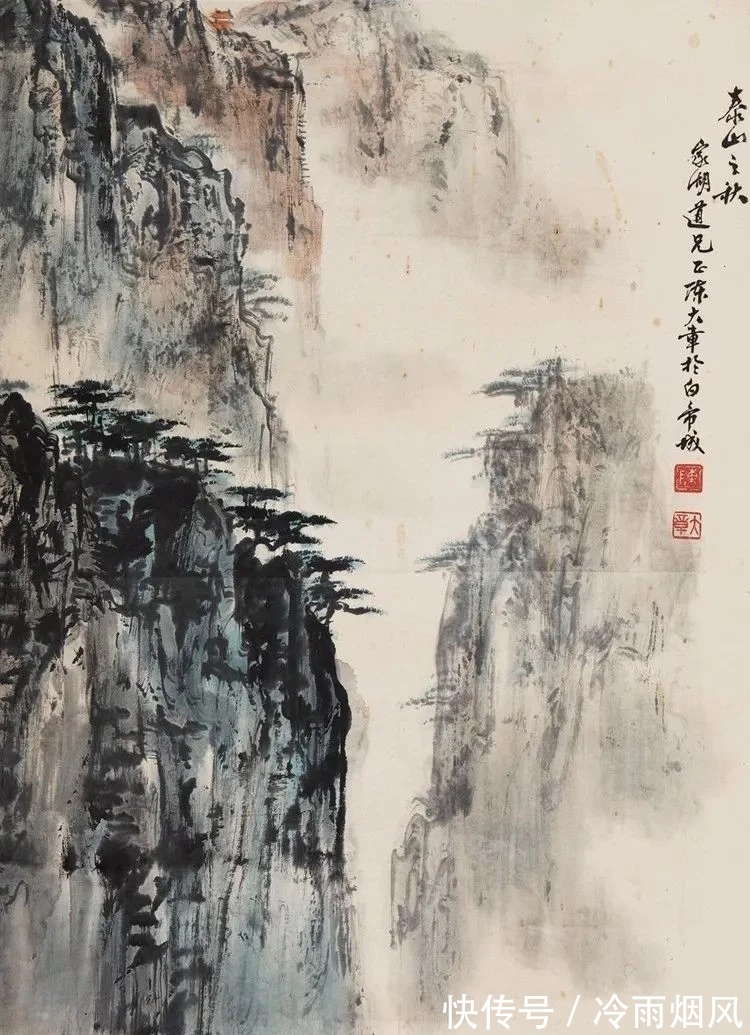 泰山之秋
家湖道兄正陈大章於白帝城
陈
大章
快传号 / 冷雨烟风